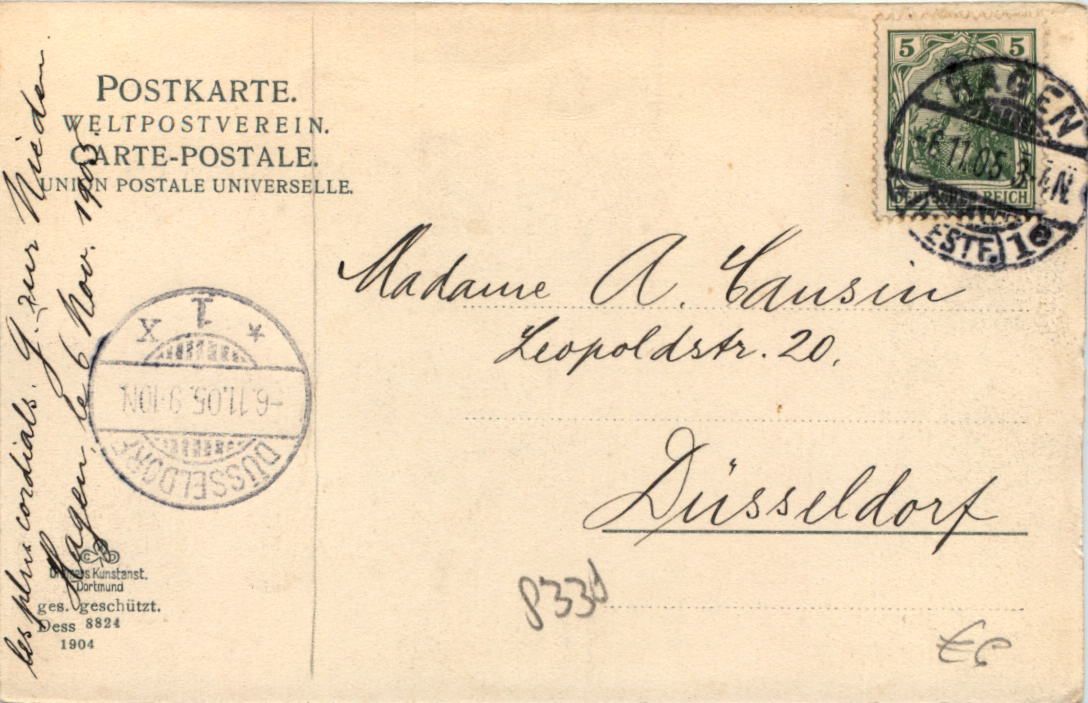 POSTKARTE.
WELTPOSTVEREIN.
CARTE-POSTALE.
UNION POSTALE UNIVERSELLE.
5 5
DEUTSCHES REICH
HAGEN
-6.11.05. 3-4N.
WESTF. 1
Madame A. Causin
Leopoldstr. 20.
Düsseldorf
1
X
*
-6.11.05. 9-10N
DÜSSELDORF
les plus cordials. G. zur Nieden
Hagen, le 6 Nov. 1905.
Kunstanst.
Dortmund
ges. geschützt.
Dess 8824
1904
€6